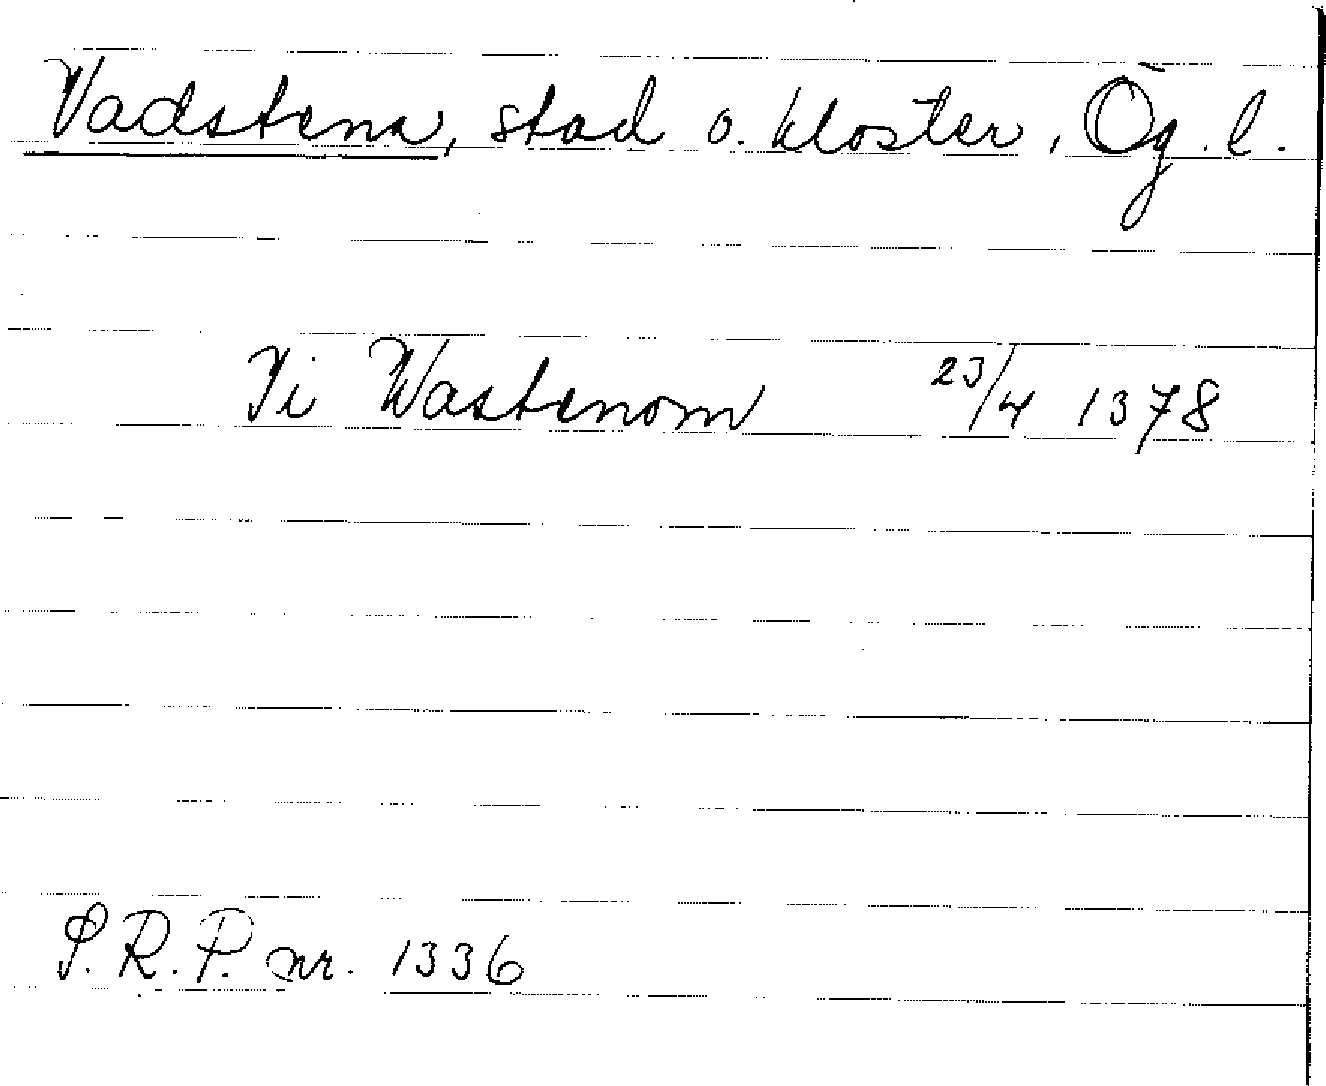 Vadstena, stad o. kloster, Ög. l.
Vi Wastenom 23/4 1378
S.R.P. nr. 1336